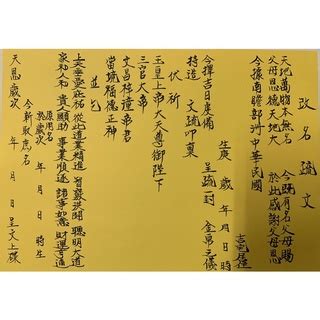 改名疏文
天地萬物本無名 今既有名父母賜
父母恩德天地大 於此感謝父母恩
今據南瞻部洲中華民國
吉宅居住
生庚 歲 年 月 日 時
今擇吉日虔備 呈疏一封 金帛之儀
特造 文疏叩稟
伏祈
玉皇上帝大天尊御陛下
三官大帝
文昌梓潼帝君
當境福德正神
並乞
上天垂庇祐 從此道業精進 智慧洪開 聰明大
家和人和 貴人顯助 事業順遂 諸事如意 財運亨通
原用名
歲次 年 月 日 時生
今新取名
天 歲次 年 月 日 呈文上